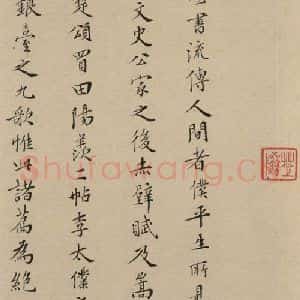 書流傳人間者僕平生所見
文史公家之後赤壁賦及嵩
楚頌買田陽羨二帖李太僕
銀臺之九歌惟此諸篇為絕
Shufawang.c